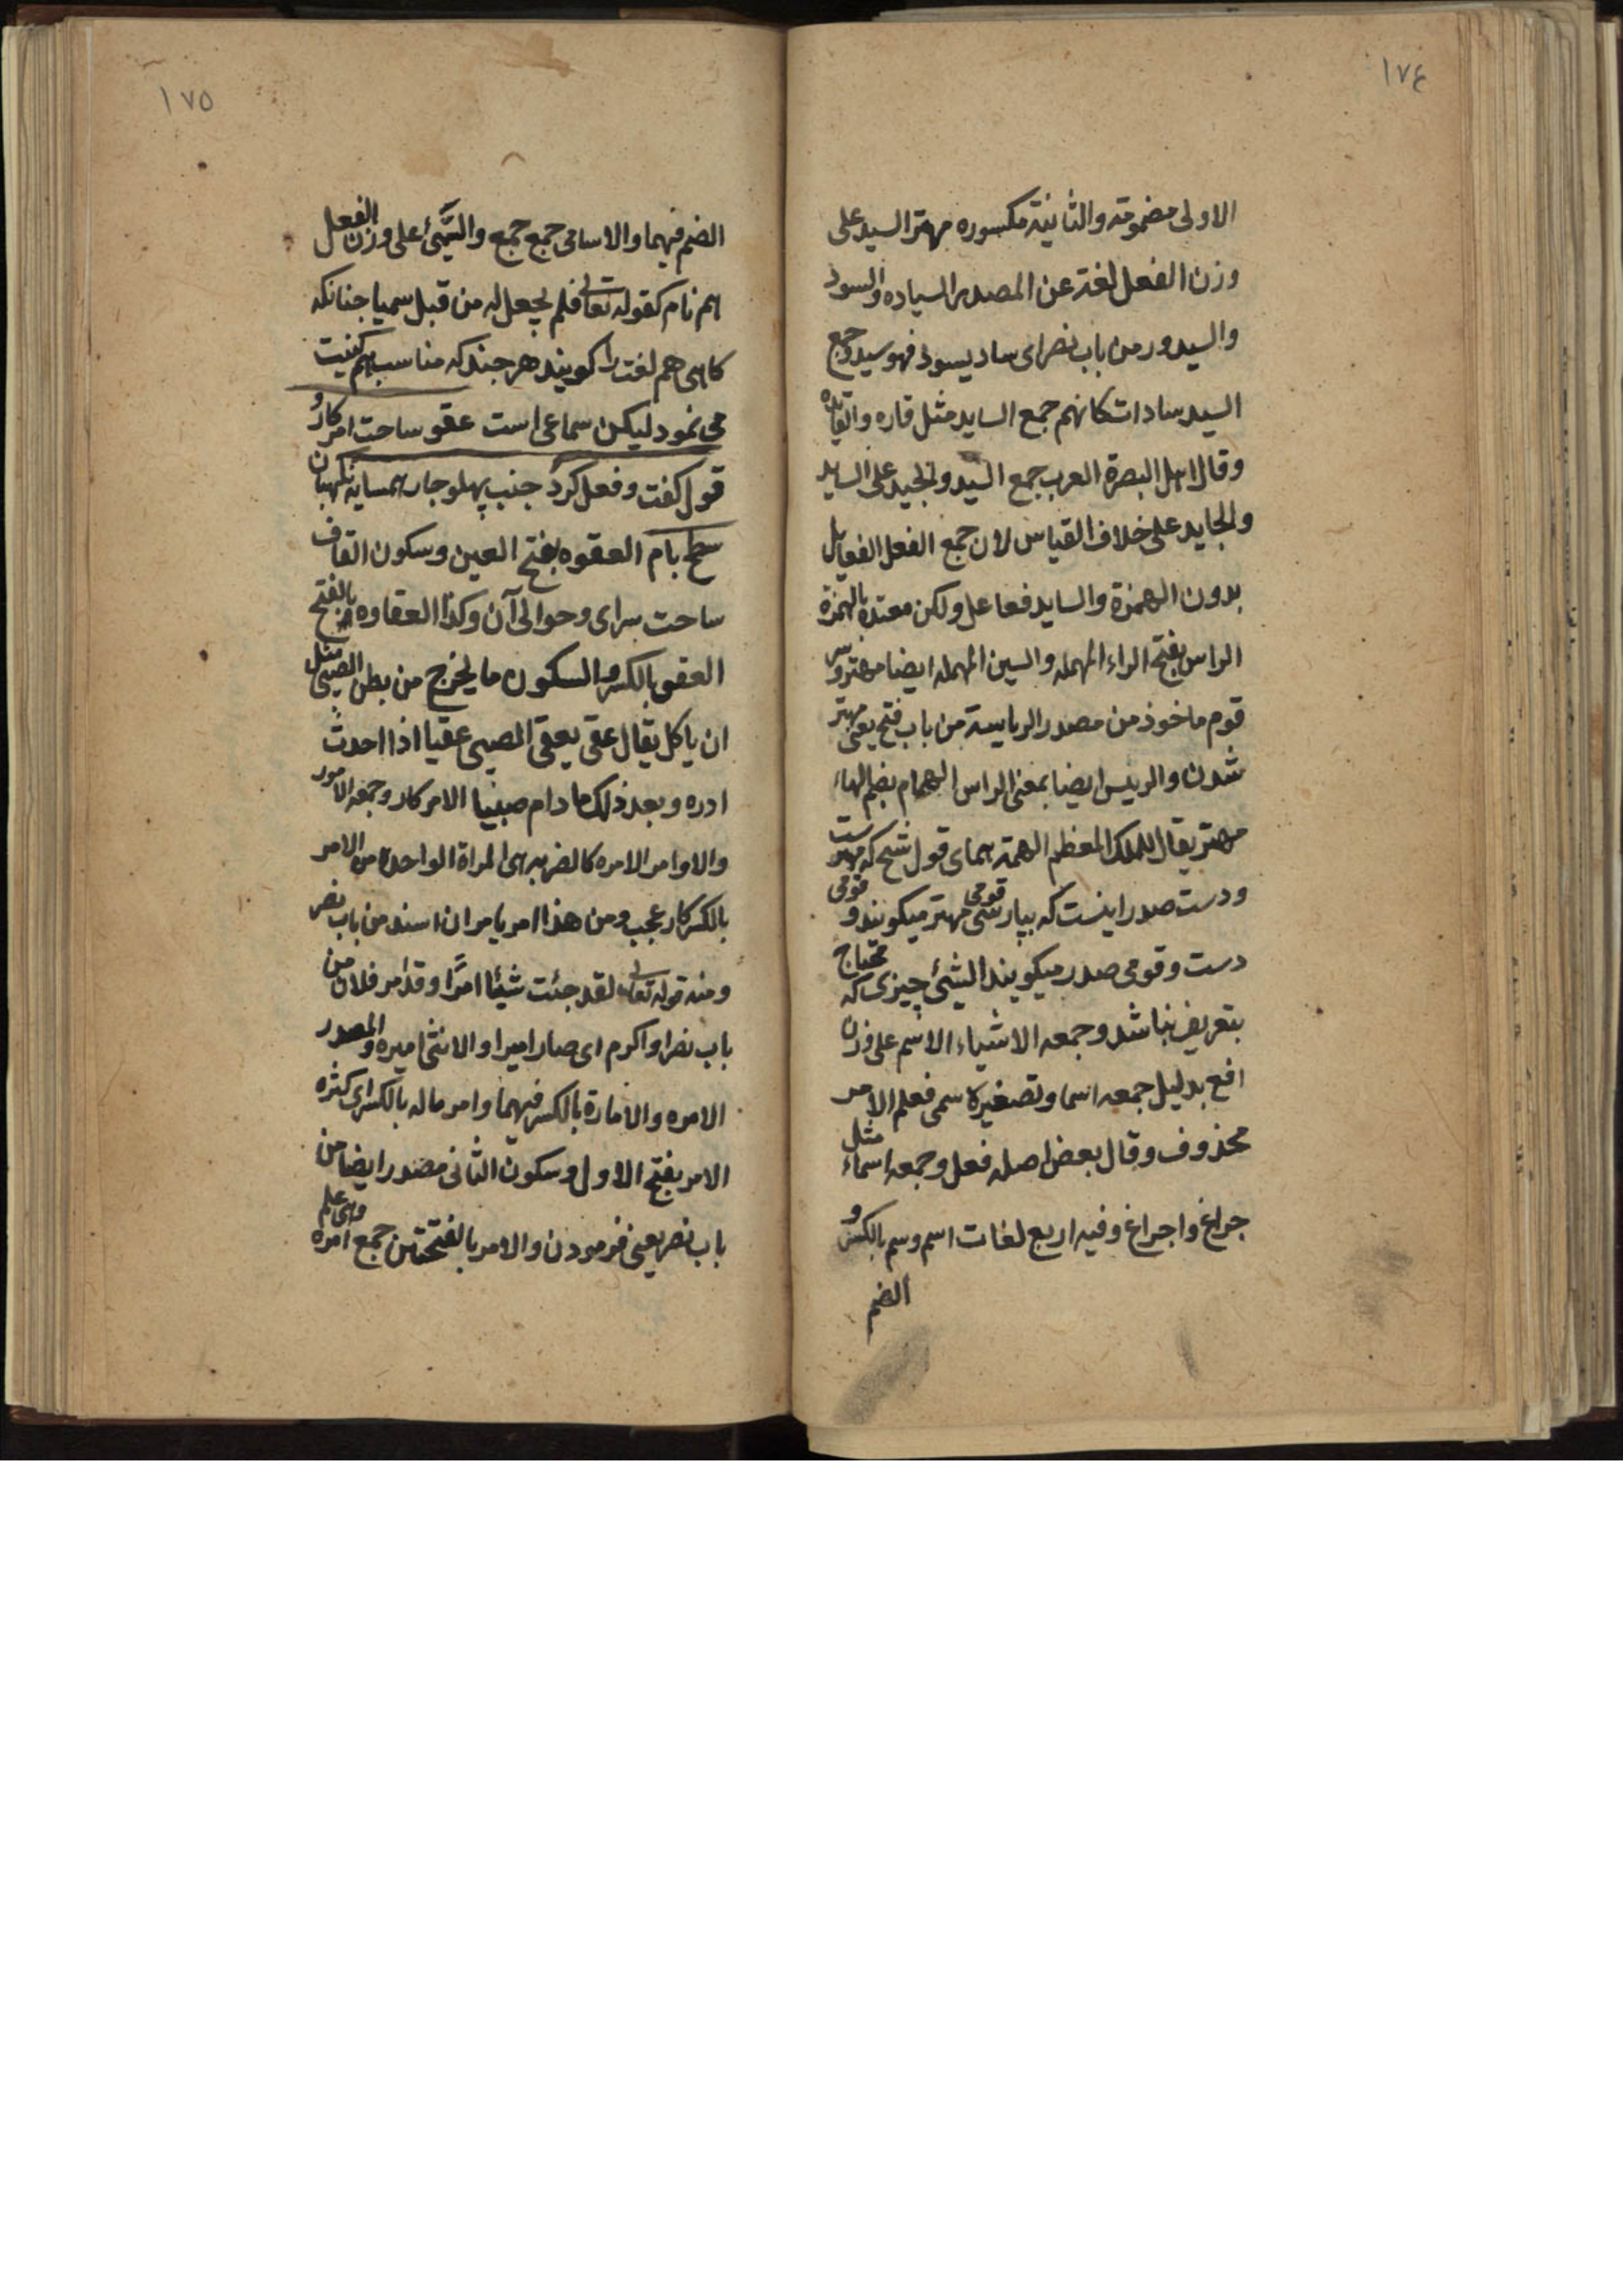 ١٧٤
الاولی مضمومة والثانیة مکسوره مهتر السید علی
وزن الفعل لغة عن المصدر السیاده والسود
والسیدور من باب نصر ای ساد یسود فهو سید وجمع
السید سادات کانهم جمع الساید مثل قاره والقایده
وقال اهل البصرة العرب جمع السید والجید علی الساید
والجاید علی خلاف القیاس لان جمع الفعل الفعایل
بدون الهمزة والساید فعاعل ولکن معتدة بالهمزة
الراس بفتح الراء المهمله والسین المهمله ایضا مهتر
قوم ماخوذ من مصدر الریاسة من باب فتح یعنی مهتر
شدن والرییس ایضا بمعنی الراس الهمام بضم الهاء
مهتر یقال للملک المعظم الهمة همای قول شیح که
ودست صدر اینست که بپارسی قومی مهتر میکویند و قومی
دست وقومی صدر میکویند الشیئ چیزی که محتاج
بتعریف نباشد وجمعه الاشیاء الاسم علی وزن
افع بدلیل جمعه اسما وتصغیره سمی فعلم الامر
محذوف وقال بعض اصله فعل وجمعه اسماء مثل
جراغ واجراغ وفیه اربع لغات اسم وسم بالکسر و
الضم
١٧٥
الضم فیهما والاسامی جمع جمع والسَّمیُ علی وزن الفعل
هم نام کقوله تعالی فلم یجعل له من قبل سمیا جنانکه
کاهی هم لغت را کویند هر جند که مناسب هم کنیت
می نمود لیکن سماعی است عقو ساحت امر کار و
قول کفت وفعل کرد جنب پهلو جار همسایه نکهبان
سطح بام العقوه بفتح العین وسکون القاف
ساحت سرای وحوالی آن وکذا العقاوه بالفتح
العقی بالکسر والسکون ما یخرج من بطن الصبی مثل
ان یاکل یقال عقی یعقی الصبی عقیا اذا احدث
ادره وبعد ذلک ما دام صبیا الامر کار وجمعه الامور
والاوامر الامره کالضربه هی المراة الواحدة من الامر
بالکسر کار عجب ومن هذا امر یامر ان اسند من باب نصر
ومنه قوله تعالی لقد جئت شیئا امرًا وقد امر فلان من
باب نصر او اکرم ای صار امیرا والانثی امیره والمصدر
الامره والامارة بالکسر فیهما وامر ماله بالکسر ای کثره
الامر بفتح الاول وسکون الثانی مصدر ایضا من
باب نصر یعنی فرمودن والامر بالفتحتین جمع امره وهی علم